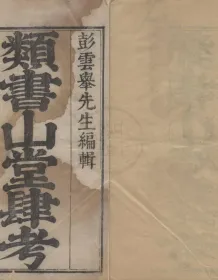 彭雲舉先生編輯
類書山堂肆考